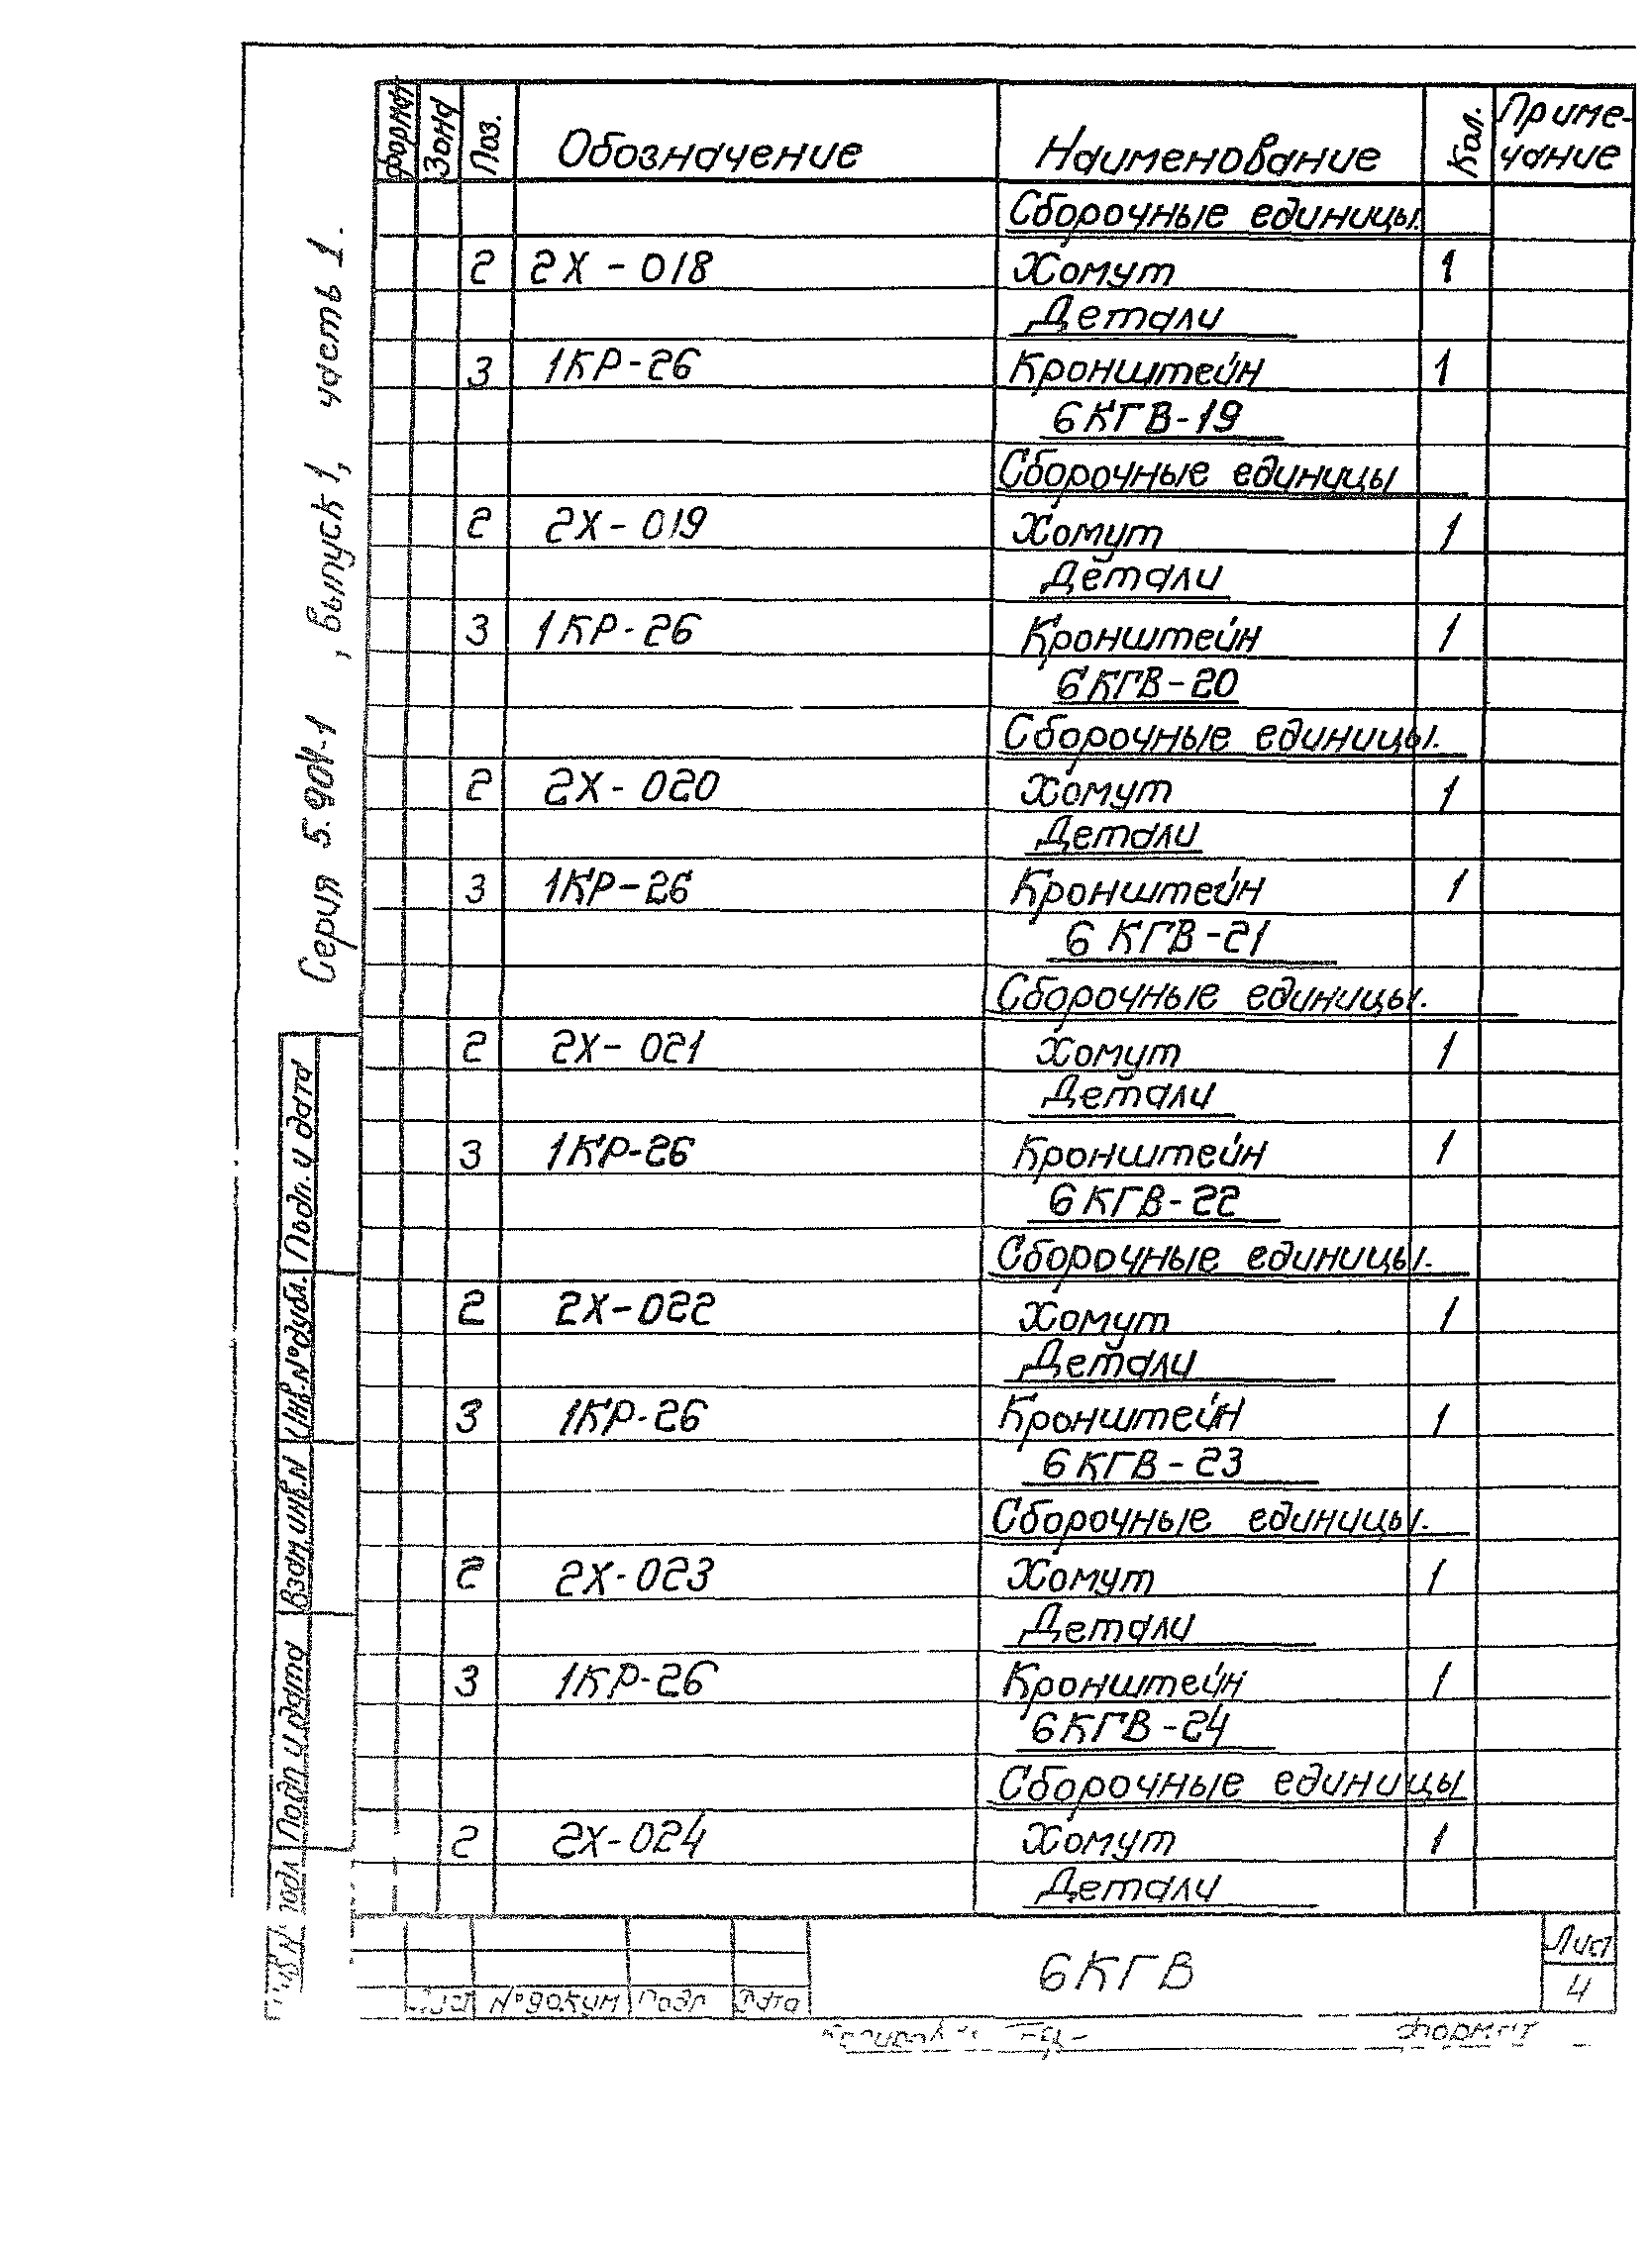 Формат Зона Поз. Обозначение Наименование Кол. Приме-
чание
Сборочные единицы.
2 2Х-018 Хомут 1
Детали
3 1КР-26 Кронштейн 1
6КГВ-19
Сборочные единицы
2 2Х-019 Хомут 1
Детали
3 1КР-26 Кронштейн 1
6КГВ-20
Сборочные единицы.
2 2Х-020 Хомут 1
Детали
3 1КР-26 Кронштейн 1
6КГВ-21
Сборочные единицы.
2 2Х-021 Хомут 1
Детали
3 1КР-26 Кронштейн 1
6КГВ-22
Сборочные единицы.
2 2Х-022 Хомут 1
Детали
3 1КР-26 Кронштейн 1
6КГВ-23
Сборочные единицы.
2 2Х-023 Хомут 1
Детали
3 1КР-26 Кронштейн 1
6КГВ-24
Сборочные единицы
2 2Х-024 Хомут 1
Детали
Серия 5.904-1, выпуск 1, часть 1.
Подп. и дата
Инв.№дубл.
Взам.инв.№
Подп и дата
подл
№докум Подп Дата
6КГВ
Лист
4
Формат